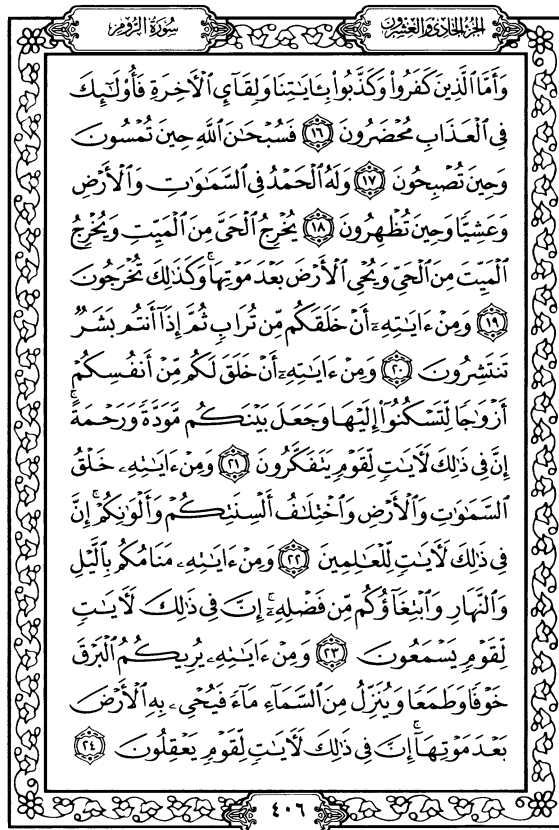 سُورَةُ الرُّومِ
الجُزْءُ الحَادِي وَالعِشْرُونَ
وَأَمَّا ٱلَّذِينَ كَفَرُوا۟ وَكَذَّبُوا۟ بِـَٔايَـٰتِنَا وَلِقَآئِ ٱلْـَٔاخِرَةِ فَأُو۟لَـٰٓئِكَ
فِى ٱلْعَذَابِ مُحْضَرُونَ ١٦ فَسُبْحَـٰنَ ٱللَّهِ حِينَ تُمْسُونَ
وَحِينَ تُصْبِحُونَ ١٧ وَلَهُ ٱلْحَمْدُ فِى ٱلسَّمَـٰوَٰتِ وَٱلْأَرْضِ
وَعَشِيًّا وَحِينَ تُظْهِرُونَ ١٨ يُخْرِجُ ٱلْحَىَّ مِنَ ٱلْمَيِّتِ وَيُخْرِجُ
ٱلْمَيِّتَ مِنَ ٱلْحَىِّ وَيُحْىِ ٱلْأَرْضَ بَعْدَ مَوْتِهَا ۚ وَكَذَٰلِكَ تُخْرَجُونَ
١٩ وَمِنْ ءَايَـٰتِهِۦٓ أَنْ خَلَقَكُم مِّن تُرَابٍ ثُمَّ إِذَآ أَنتُم بَشَرٌ
تَنتَشِرُونَ ٢٠ وَمِنْ ءَايَـٰتِهِۦٓ أَنْ خَلَقَ لَكُم مِّنْ أَنفُسِكُمْ
أَزْوَٰجًا لِّتَسْكُنُوٓا۟ إِلَيْهَا وَجَعَلَ بَيْنَكُم مَّوَدَّةً وَرَحْمَةً ۚ
إِنَّ فِى ذَٰلِكَ لَـَٔايَـٰتٍ لِّقَوْمٍ يَتَفَكَّرُونَ ٢١ وَمِنْ ءَايَـٰتِهِۦ خَلْقُ
ٱلسَّمَـٰوَٰتِ وَٱلْأَرْضِ وَٱخْتِلَـٰفُ أَلْسِنَتِكُمْ وَأَلْوَٰنِكُمْ ۚ إِنَّ
فِى ذَٰلِكَ لَـَٔايَـٰتٍ لِّلْعَـٰلِمِينَ ٢٢ وَمِنْ ءَايَـٰتِهِۦ مَنَامُكُم بِٱلَّيْلِ
وَٱلنَّهَارِ وَٱبْتِغَآؤُكُم مِّن فَضْلِهِۦٓ ۚ إِنَّ فِى ذَٰلِكَ لَـَٔايَـٰتٍ
لِّقَوْمٍ يَسْمَعُونَ ٢٣ وَمِنْ ءَايَـٰتِهِۦ يُرِيكُمُ ٱلْبَرْقَ
خَوْفًا وَطَمَعًا وَيُنَزِّلُ مِنَ ٱلسَّمَآءِ مَآءً فَيُحْىِۦ بِهِ ٱلْأَرْضَ
بَعْدَ مَوْتِهَآ ۚ إِنَّ فِى ذَٰلِكَ لَـَٔايَـٰتٍ لِّقَوْمٍ يَعْقِلُونَ ٢٤
٤٠٦